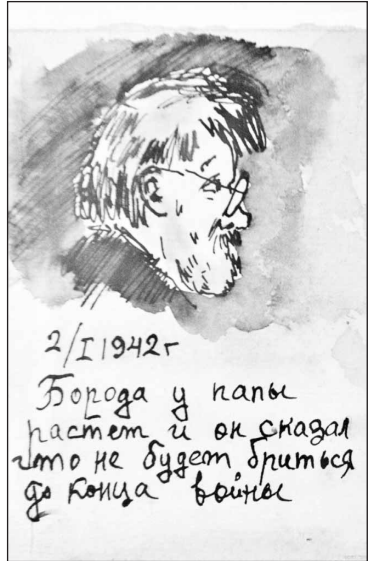 2/I 1942г
Борода у папы
растет и он сказал
что не будет бриться
до конца войны